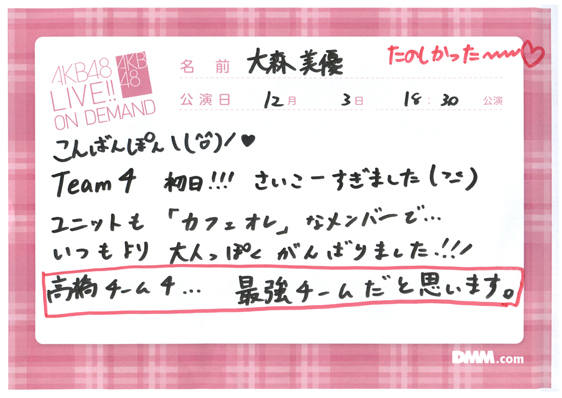 AKB48
LIVE!!
ON DEMAND
AKB
48
名前 大森美優
たのしかった〜〜♡
公演日 12月 3日 18:30 公演
こんばんぽん\(^o^)/♥
Team4 初日!!! さいこーすぎました(>_<)
ユニットも「カフェオレ」なメンバーで...
いつもより 大人っぽく がんばりました!!!
高橋チーム4... 最強チームだと思います。
DMM.com